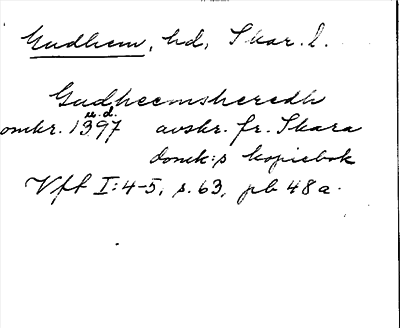 Gudhem, hd, Skar. l.
Gudheemsheredh
u. d.
omkr. 1397 avskr. fr. Skara
domk:s kopiebok
Vft I:4-5, s. 63, pb 48a.